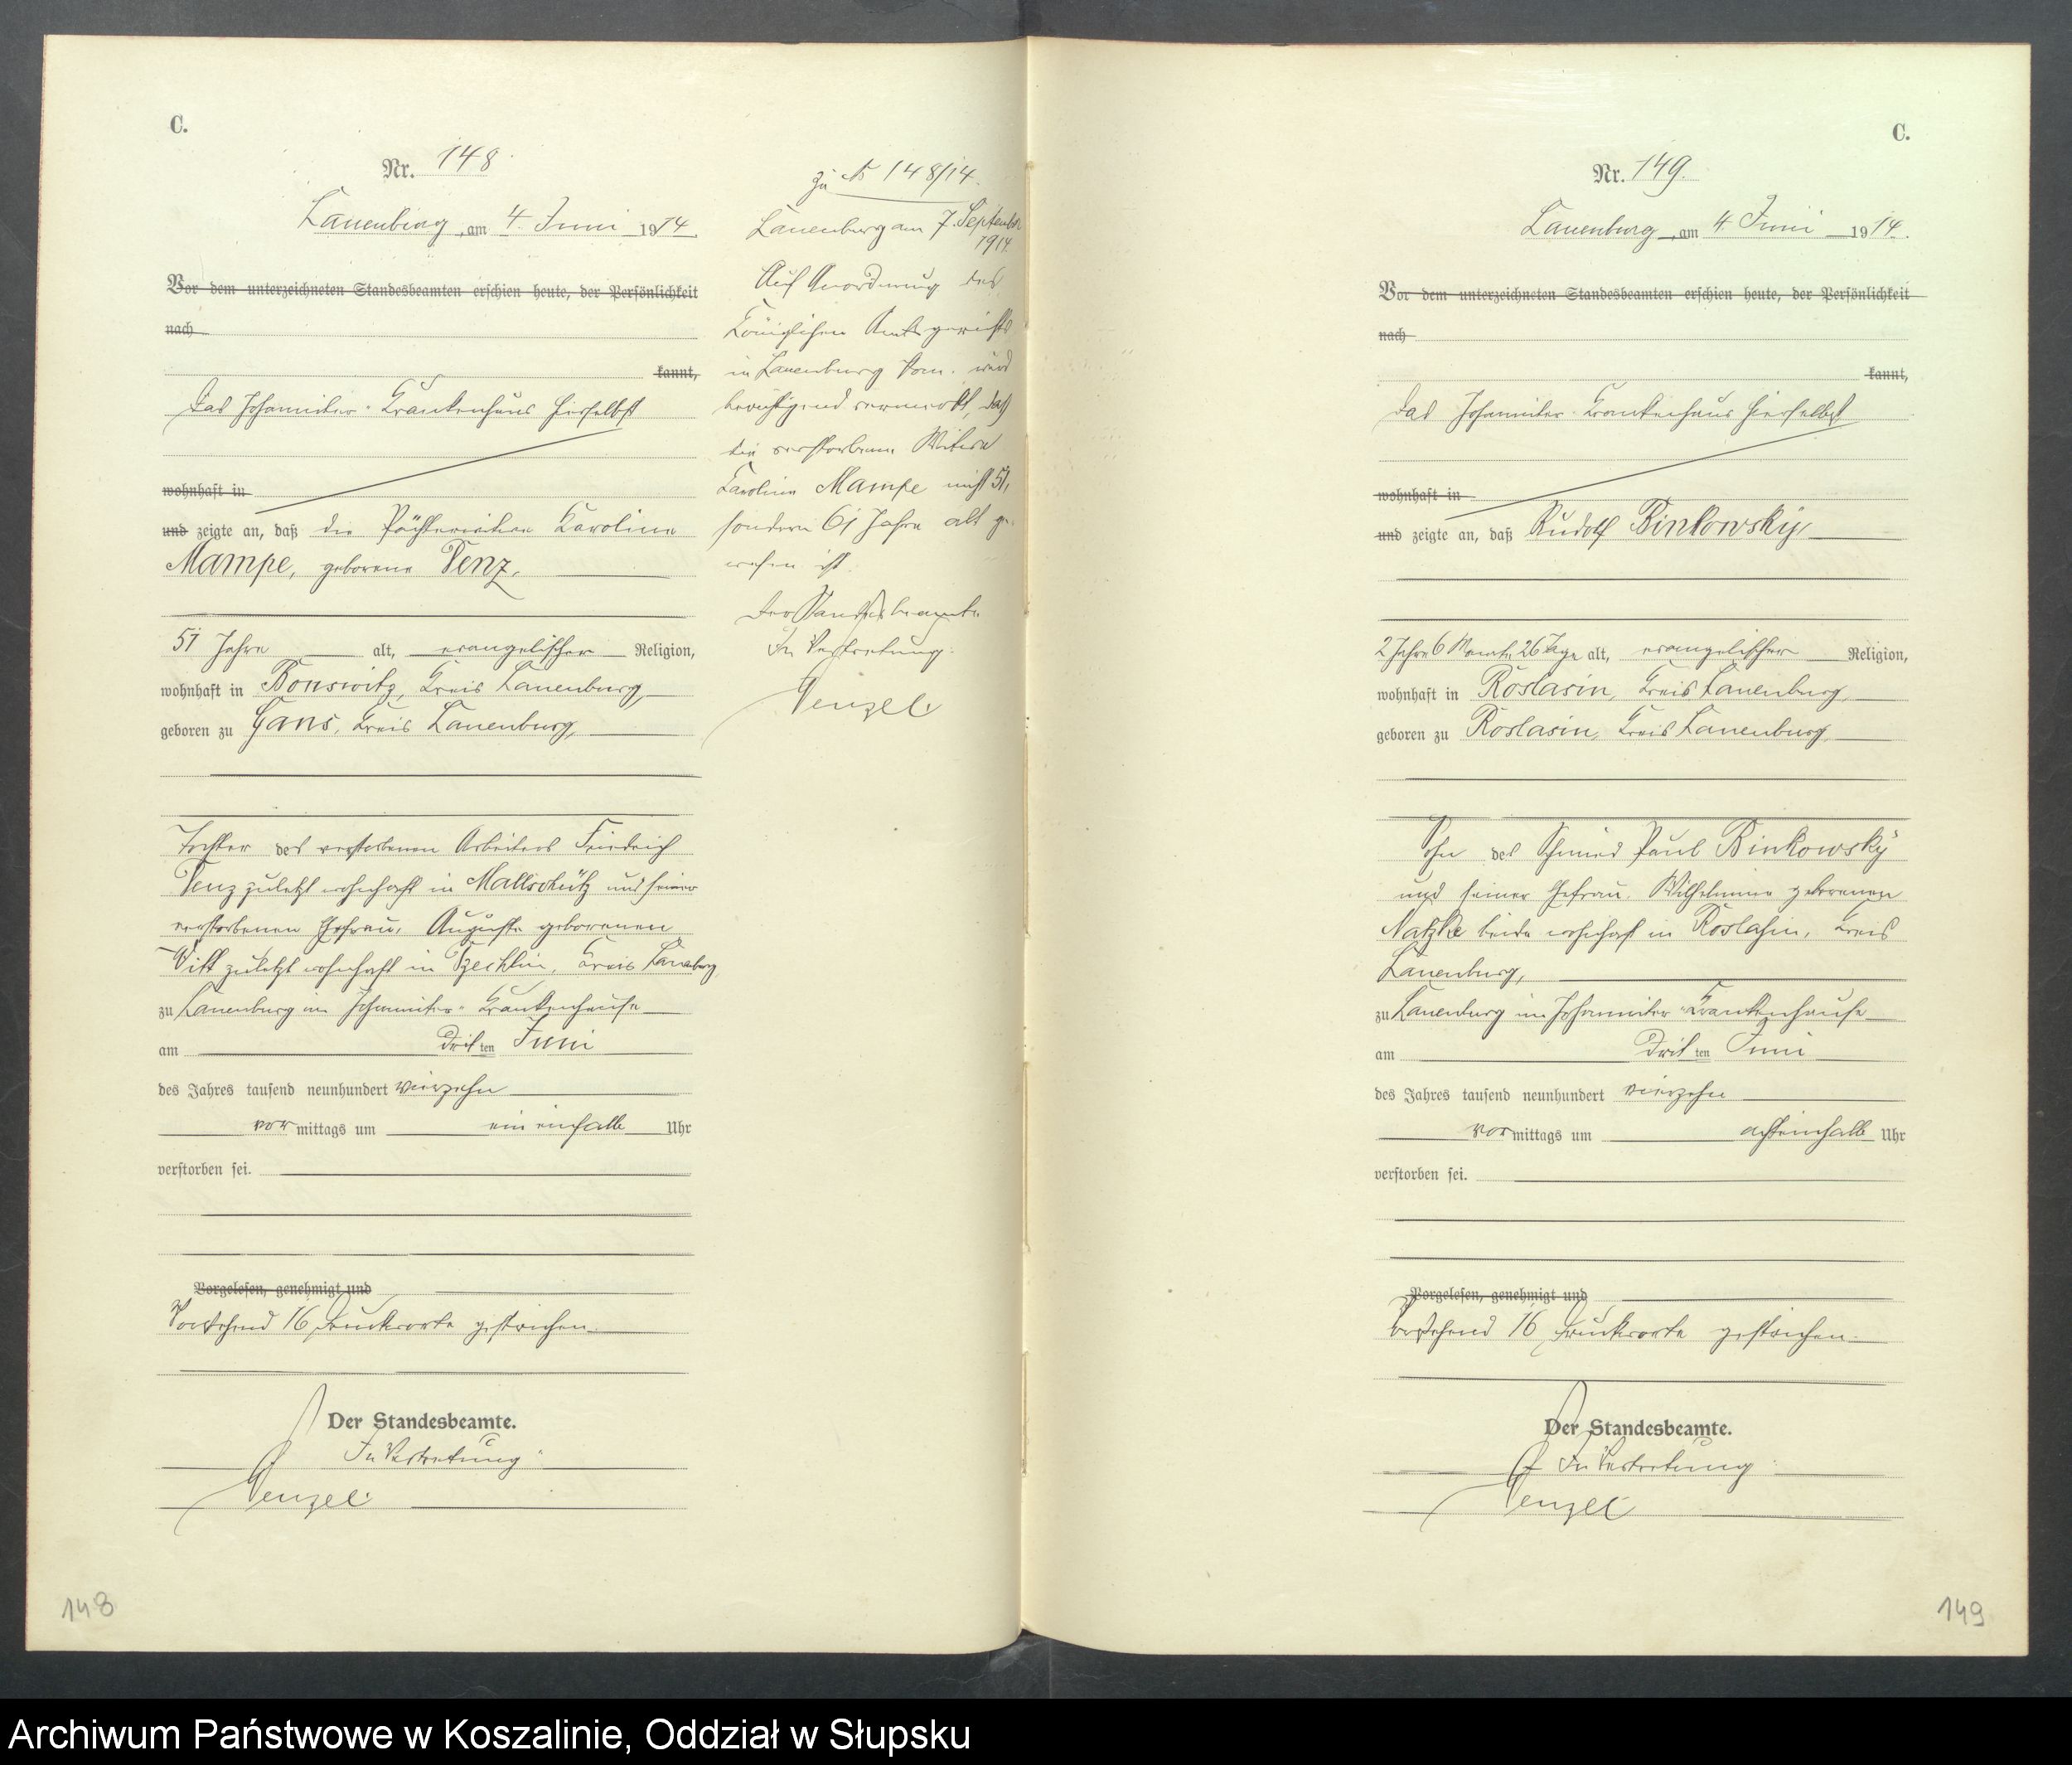 C.
Nr. 148
Lauenburg, am 4. Juni 1914.
Vor dem unterzeichneten Standesbeamten erschien heute, der Persönlichkeit
nach
kannt,
das Johanniter-Krankenhaus hierselbst
wohnhaft in
und zeigte an, daß die Karoline
Mampe, geborene Venz,
51 Jahre alt, evangelischer Religion,
wohnhaft in Bonswitz, Kreis Lauenburg,
geboren zu Gans, Kreis Lauenburg,
Tochter des verstorbenen Arbeiters Friedrich
Venz zuletzt wohnhaft in Mallschütz und seiner
verstorbenen Ehefrau, Auguste geborenen
zuletzt wohnhaft in Kreis Lauenburg,
zu Lauenburg im Johanniter-Krankenhause
am dritten Juni
des Jahres tausend neunhundert vierzehn
vormittags um ein einhalb Uhr
verstorben sei.
Vorgelesen, genehmigt und
Vorstehend 16 Druckworte gestrichen.
Der Standesbeamte.
In Vertretung:
Venzel.
zu № 148/14.
Lauenburg am 7. September
1914.
Auf Anordnung des
Königlichen Amtsgerichts
in Lauenburg Pom. wird
berichtigend vermerkt, daß
die verstorbene Witwe
Karoline Mampe nicht 51,
sondern 61 Jahre alt ge-
wesen ist.
Der Standesbeamte
In Vertretung:
Venzel.
148
C.
Nr. 149.
Lauenburg, am 4. Juni 1914.
Vor dem unterzeichneten Standesbeamten erschien heute, der Persönlichkeit
nach
kannt,
das Johanniter-Krankenhaus hierselbst
wohnhaft in
und zeigte an, daß Rudolf Binkowsky,
2 Jahre 6 Monate 26 Tage alt, evangelischer Religion,
wohnhaft in Roslasin, Kreis Lauenburg,
geboren zu Roslasin, Kreis Lauenburg,
Sohn des Schmied Paul Binkowsky
und seiner Ehefrau, Wilhelmine geborenen
Natzke beide wohnhaft in Roslasin, Kreis
Lauenburg,
zu Lauenburg im Johanniter-Krankenhause
am dritten Juni
des Jahres tausend neunhundert vierzehn
vormittags um achteinhalb Uhr
verstorben sei.
Vorgelesen, genehmigt und
Vorstehend 16 Druckworte gestrichen.
Der Standesbeamte.
In Vertretung:
Venzel
149
Archiwum Państwowe w Koszalinie, Oddział w Słupsku